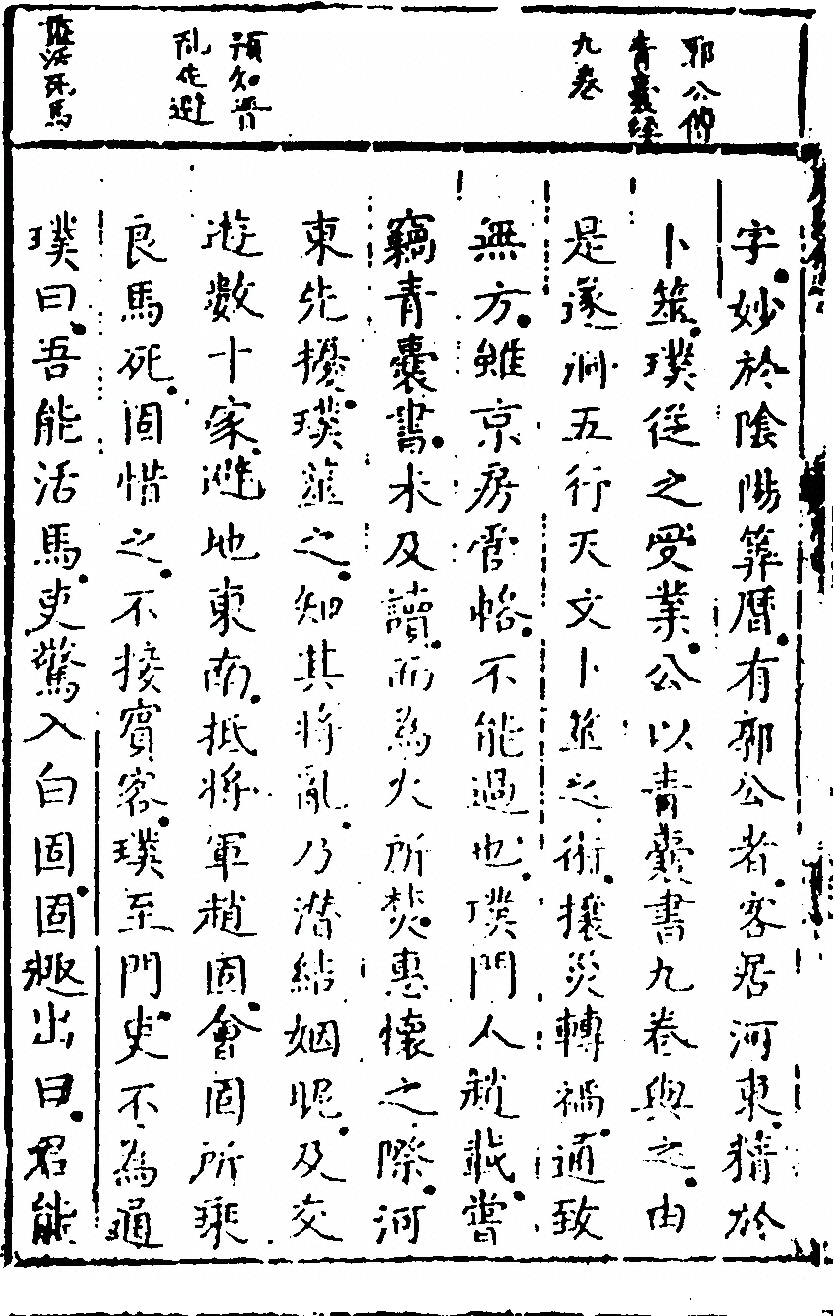 郭公傳
青囊經
九卷
預知晉
亂化避
字妙於陰陽筭曆有郭公者客居河東精於
卜筮璞從之受業公以青囊書九卷與之由
是遂洞五行天文卜筮之術攘災轉禍通致
無方雖京房管恪不能過也璞門人趙載嘗
竊青囊書未及讀而為火所焚惠懷之際河
東先擾璞筮之知其將亂乃潜結姻昵及交
遊數十家避地東南抵將軍趙固會固所乘
良馬死固惜之不接賓客璞至門吏不為通
璞曰吾能活馬吏驚入白固固趨出曰君能